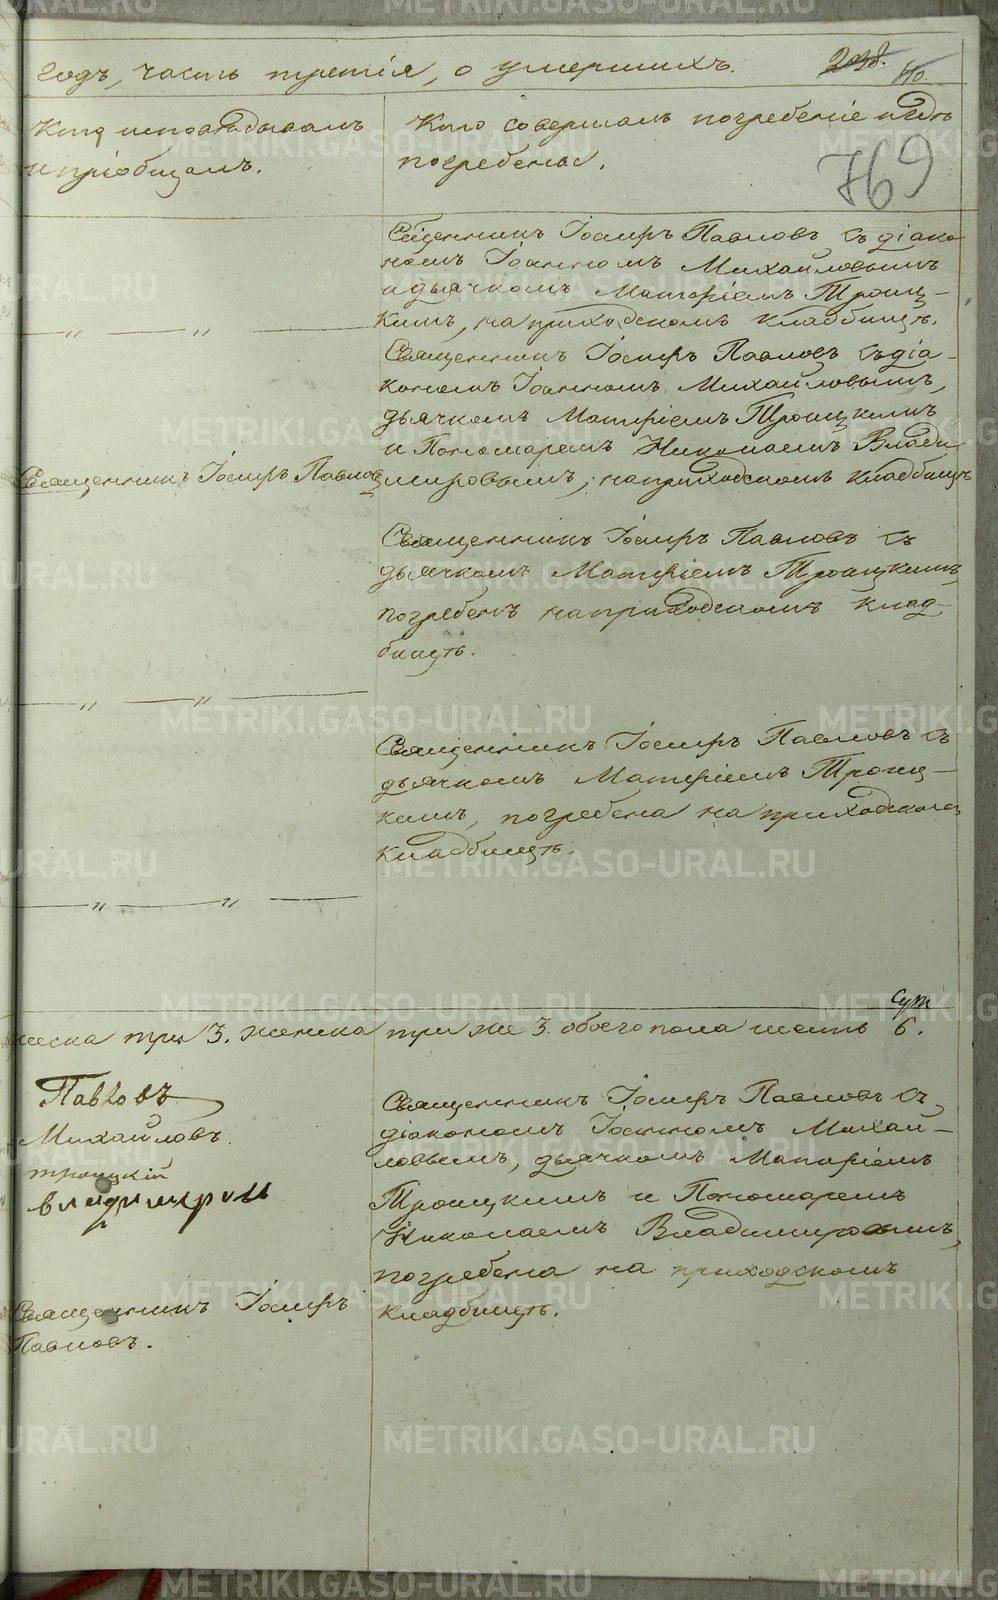 годъ, часть третія, о умершихъ.
238. 40.
769
Кто исповѣдывалъ
и пріобщалъ.
Кто совершалъ погребеніе и гдѣ
погребены.
Священникъ Іосифъ Павловъ съ діако
номъ Іоанномъ Михайловымъ
и дьячкомъ Матфіемъ Троиц-
кимъ, на приходскомъ кладбищѣ.
—— „ —— „ ——
Священникъ Іосифъ Павловъ
Священникъ Іосифъ Павловъ съ діа-
кономъ Іоанномъ Михайловымъ,
дьячкомъ Матфіемъ Троицкимъ
и Пономаремъ Николаемъ Влади
мировымъ, на приходскомъ кладбищѣ
Священникъ Іосифъ Павловъ съ
дьячкомъ Матфіемъ Троицкимъ
погребенъ на приходскомъ клад-
бищѣ.
—— „ —— „ ——
Священникъ Іосифъ Павловъ съ
дьячкомъ Матфіемъ Троиц-
кимъ, погребена на приходскомъ
кладбищѣ.
—— „ —— „ ——
мужеска три 3. женска три же 3. обоего пола шесть 6.
Павловъ
Михайловъ
Троицкій
Владимиров
Священникъ Іосифъ
Павловъ.
Священникъ Іосифъ Павловъ съ
діакономъ Іоанномъ Михай-
ловымъ, дьячкомъ Матфіемъ
Троицкимъ и Пономаремъ
Николаемъ Владимировымъ,
погребена на приходскомъ
кладбищѣ.
METRIKI.GASO-URAL.RU